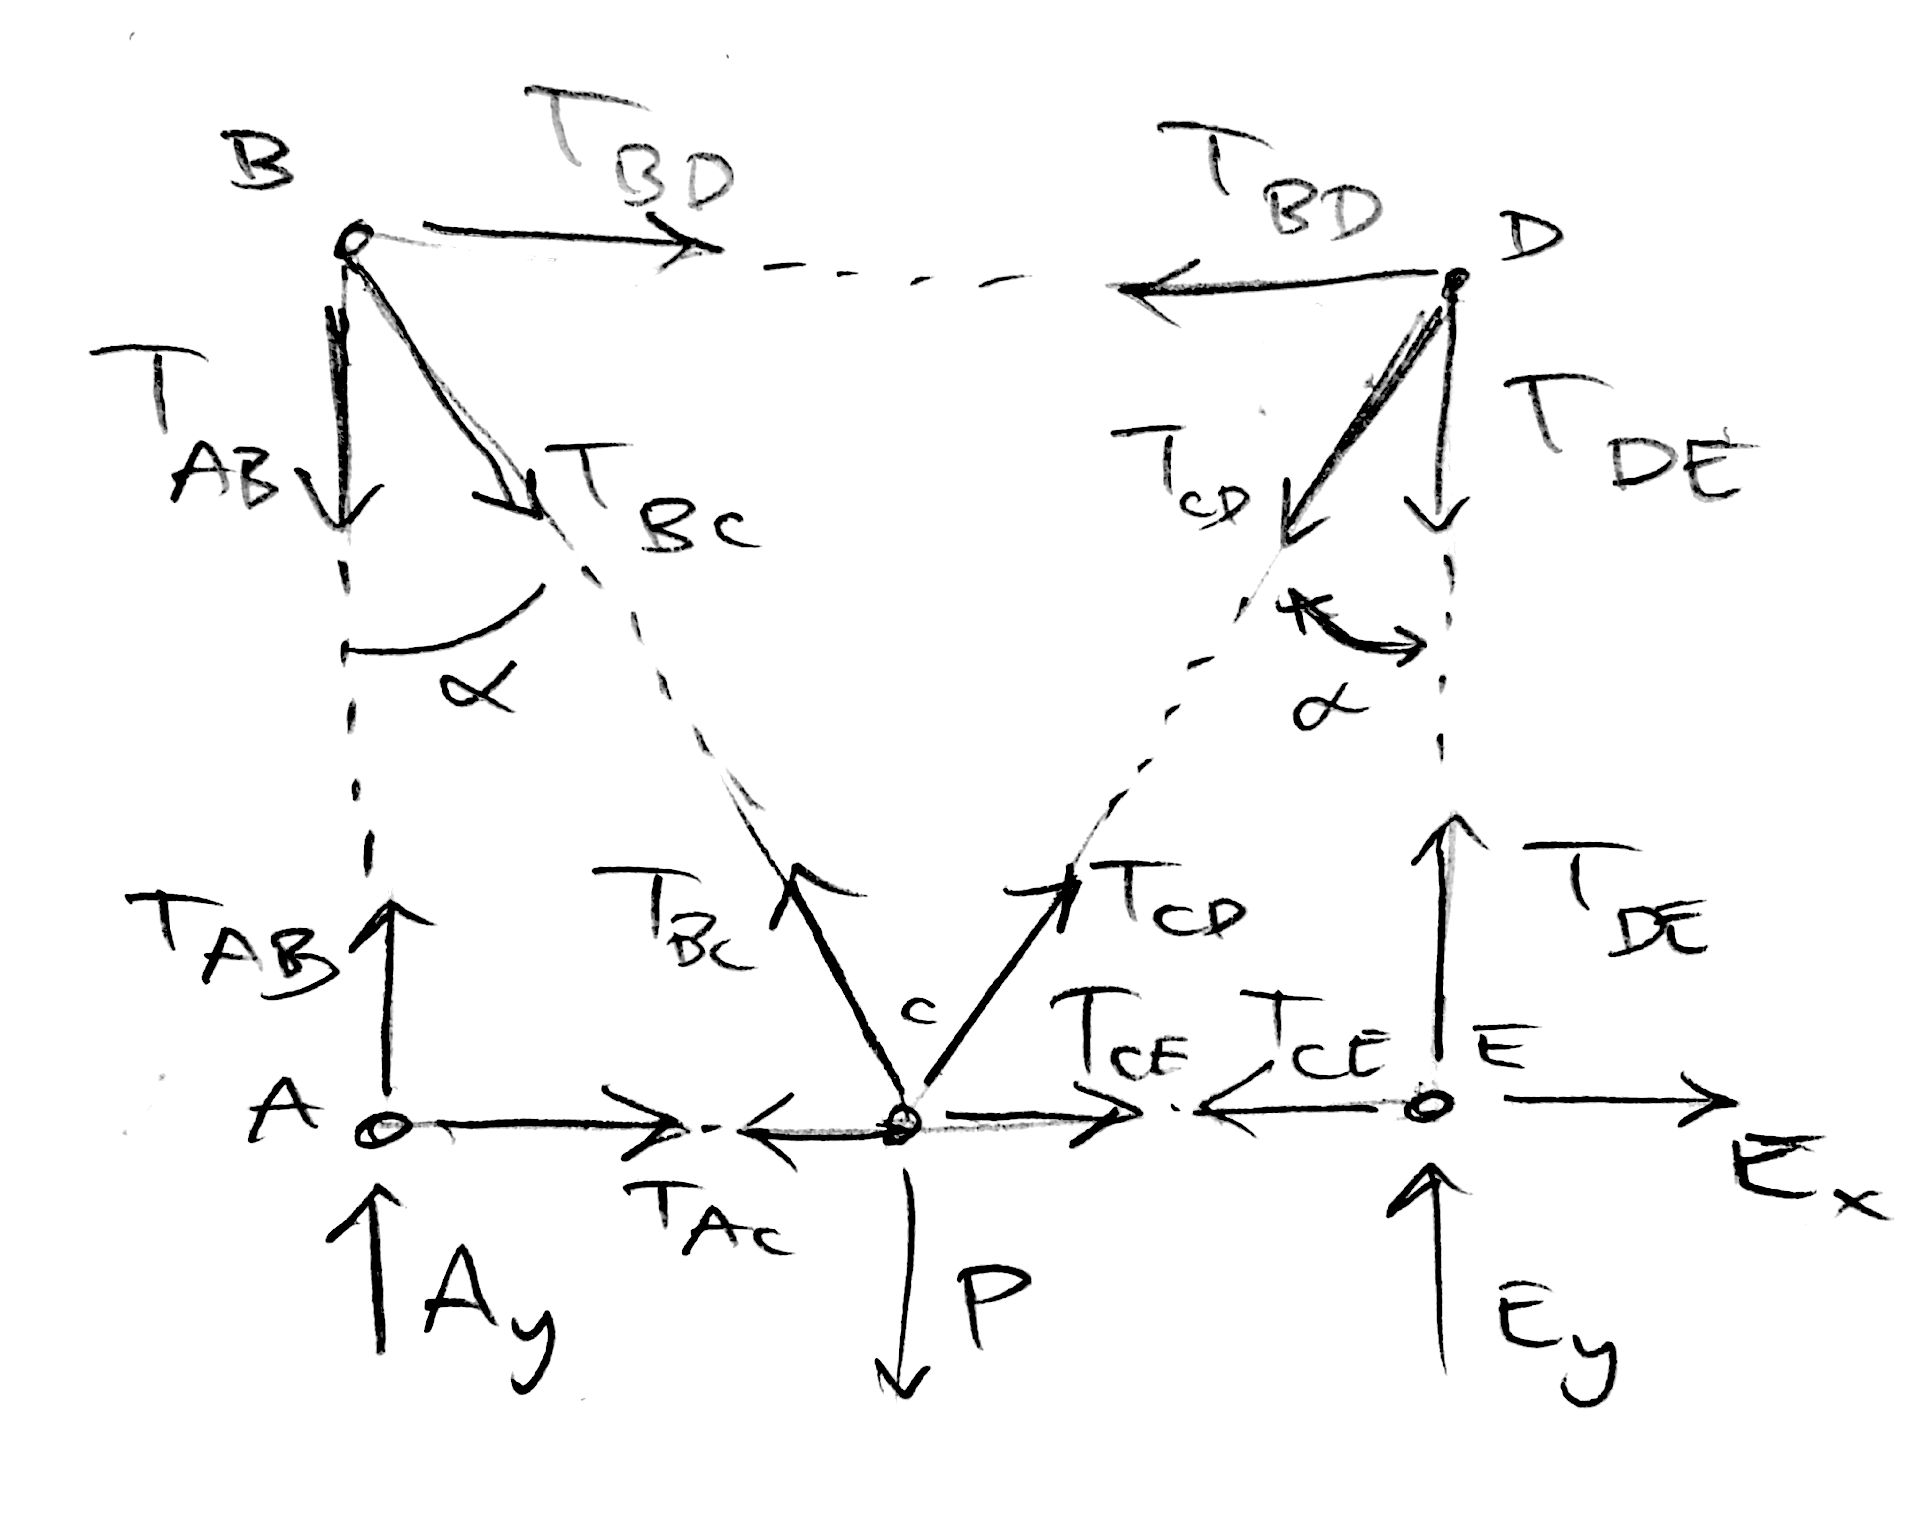 B
T_BD
T_BD
D
T_AB
T_BC
T_CD
T_DE
α
α
T_AB
T_BC
T_CD
T_DE
A
C
T_CE
T_CE
E
T_AC
E_x
A_y
P
E_y